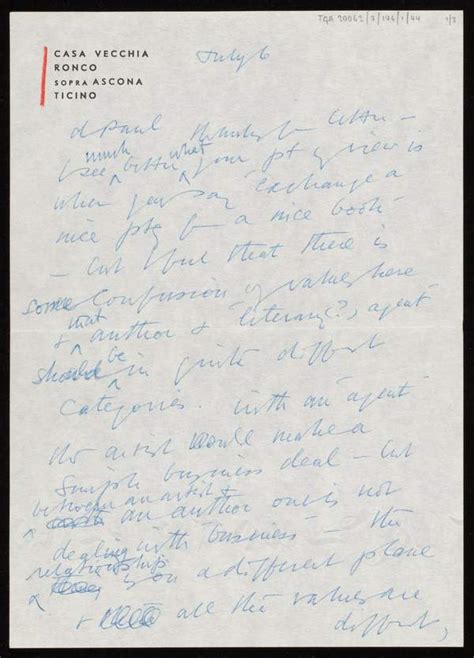 TGA 20062/2/176/1/44 1/3
CASA VECCHIA
RONCO
SOPRA ASCONA
TICINO
July 6
d Paul thanks for letter –
I see much better what your pt of view is
when you say exchange a
nice ptg for a nice book
– but I feel that there is
some confusion of values here
& that author & 'literary(?) agent'
should be in quite differt
categories. with an 'agent'
the artist would make a
simple business deal – but
between an artist &
an author one is not
dealing with 'business' – the
relationship
is on a different plane
& all the values are
differt,